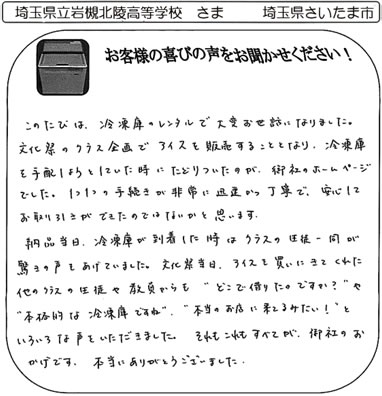 埼玉県立岩槻北陵高等学校　さま　　埼玉県さいたま市
お客様の喜びの声をお聞かせください！
このたびは、冷凍庫のレンタルで大変お世話になりました。
文化祭のクラス企画でアイスを販売することとなり、冷凍庫
を手配しようとしていた時にたどりついたのが、御社のホームページ
でした。1つ1つの手続きが非常に迅速かつ丁寧で、安心して
お取り引きができたのではないかと思います。
納品当日、冷凍庫が到着した時はクラスの生徒一同が
驚きの声をあげていました。文化祭当日、アイスを買いにきてくれた
他のクラスの生徒や教員からも“どこで借りたのですか？”や
“本格的な冷凍庫ですね”、“本当のお店に来てるみたい！”と
いろいろな声をいただきました。それもこれもすべてが、御社のお
かげです。本当にありがとうございました。